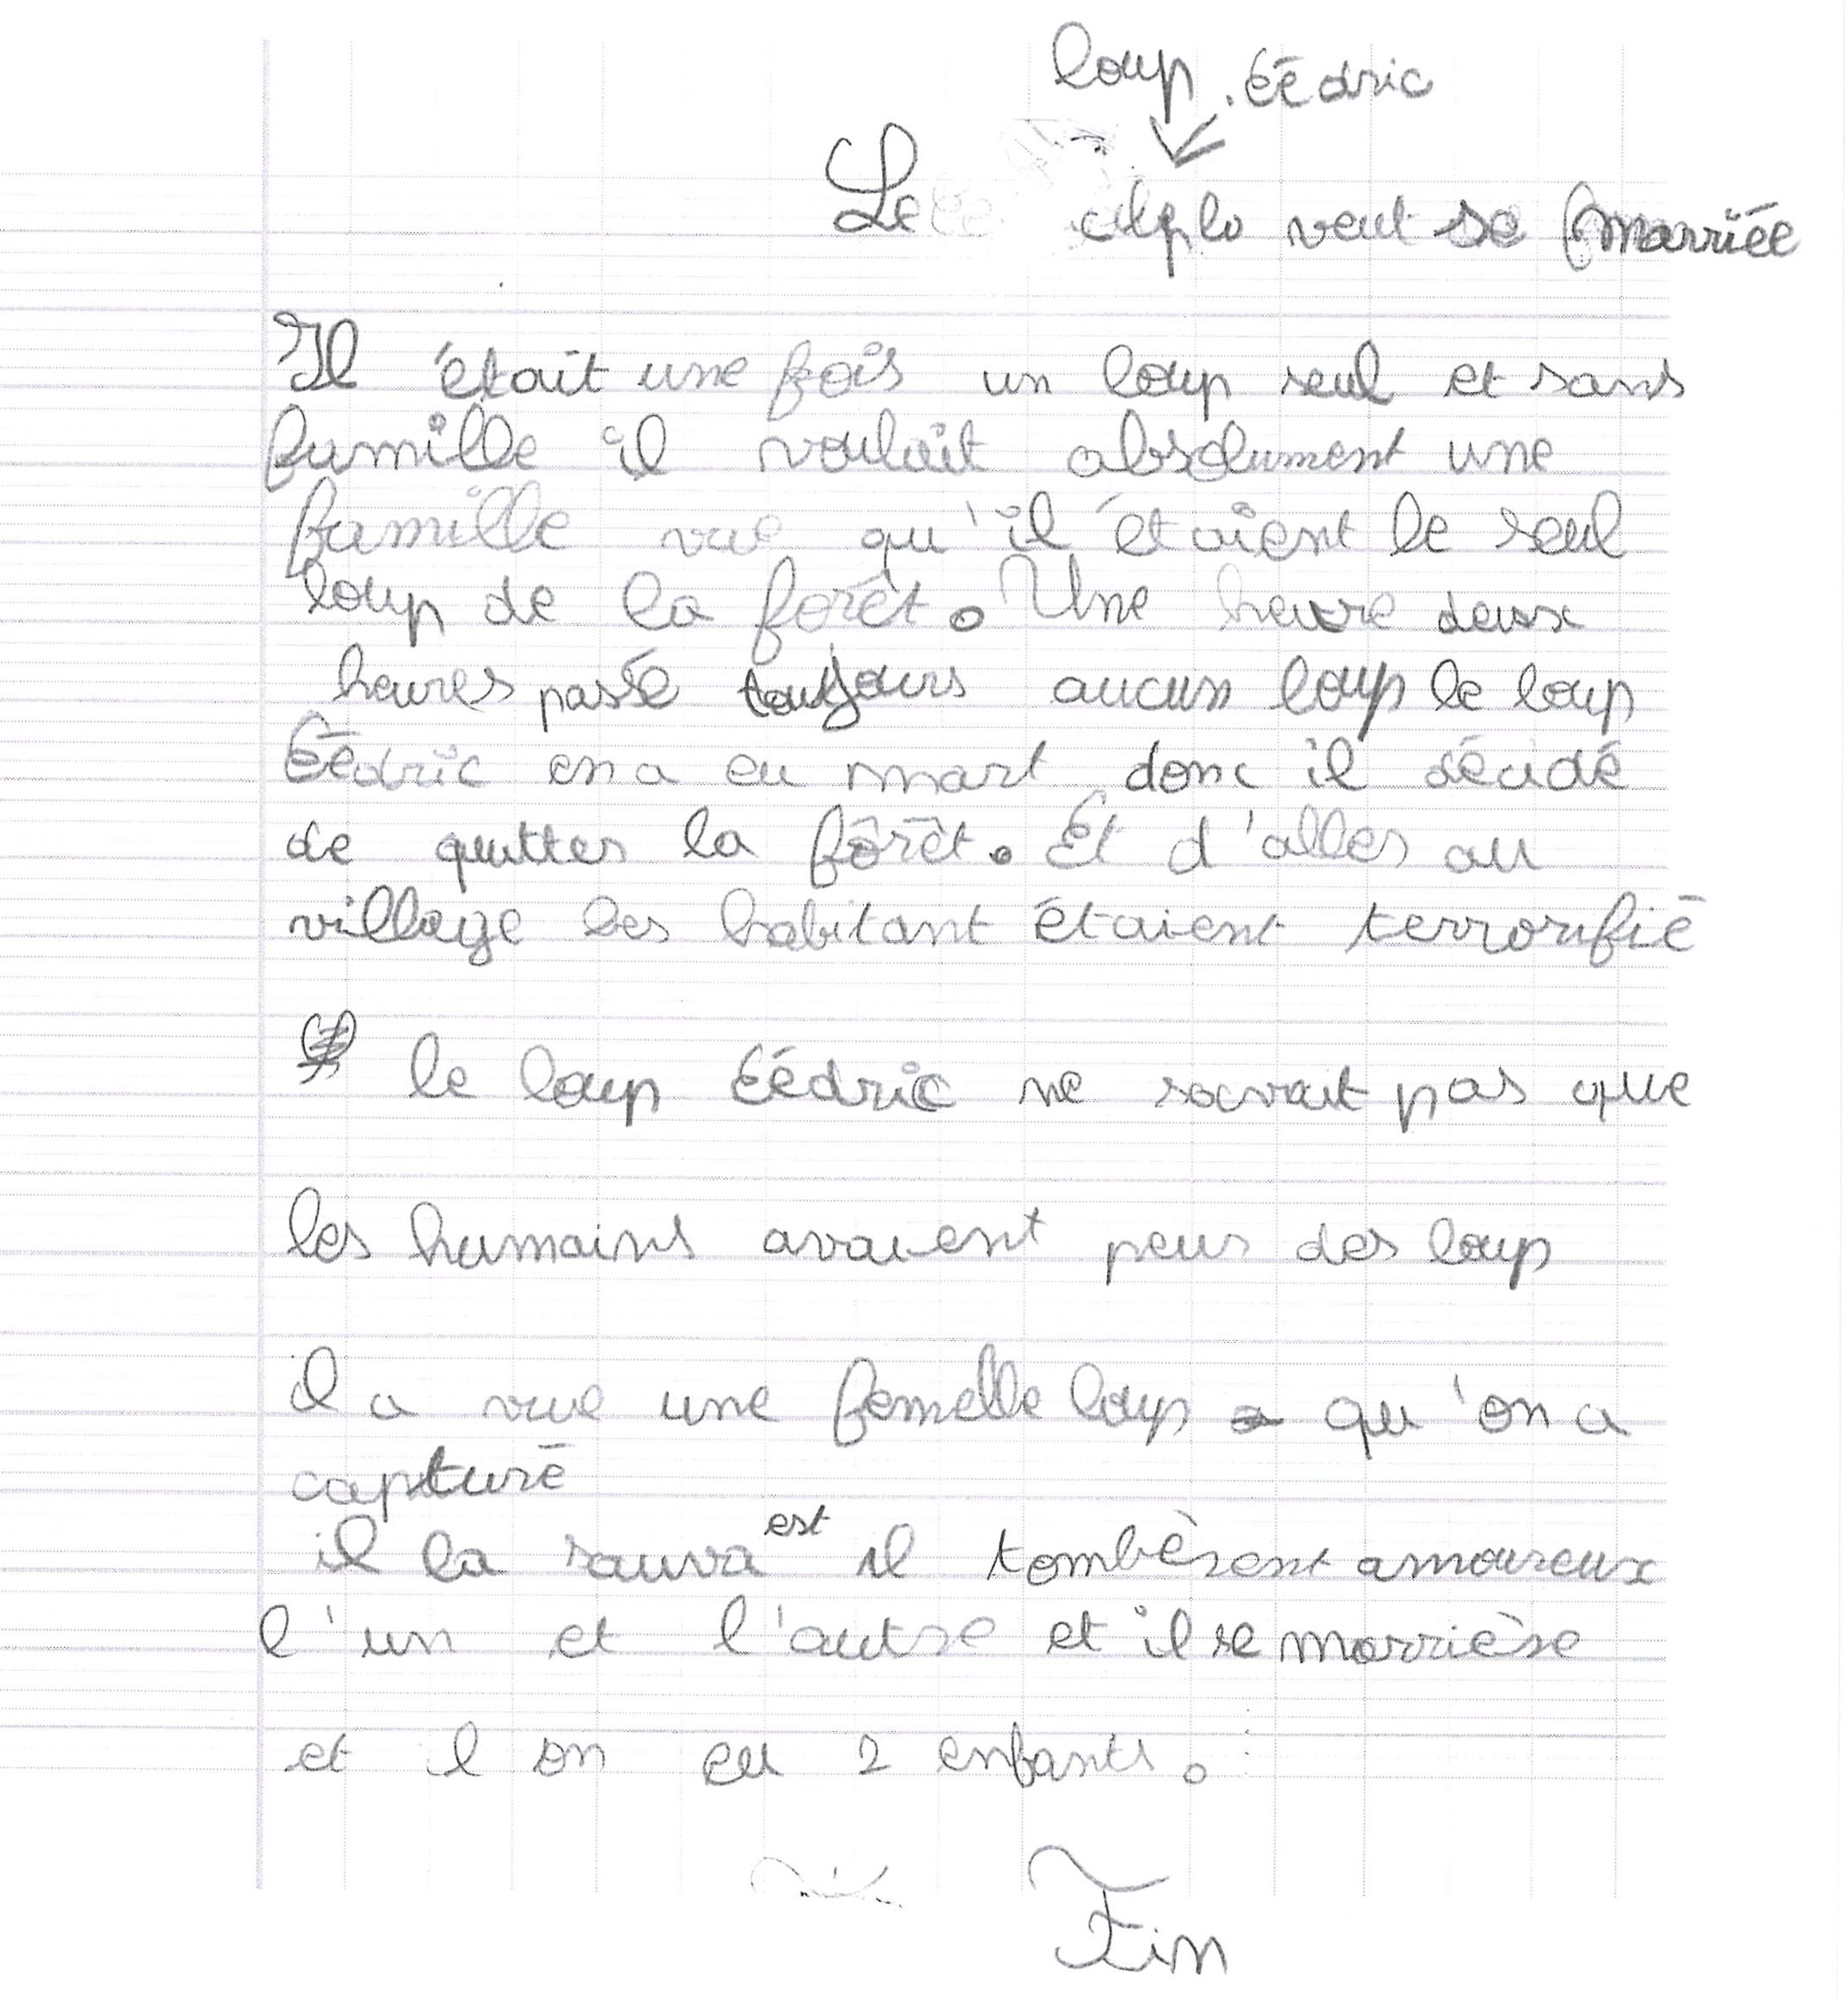 loup Cédric
Le veut se marriée
Il était une fois un loup seul et sans
famille il voulait absolument une
famille vue qu'il étaient le seul
loup de la forêt. Une heure deux
heures passé toujours aucun loup le loup
Cédric en a eu mart donc il décidé
de quitter la fôrêt. Et d'aller au
village les habitant étaient terrorifié
le loup Cédric ne savait pas que
les humains avaient peur des loup
il a vue une femelle loup qu'on a
capturé
il la sauva est il tombèrent amoureux
l'un et l'autre et il se marrière
et il on eu 2 enfants.
Fin